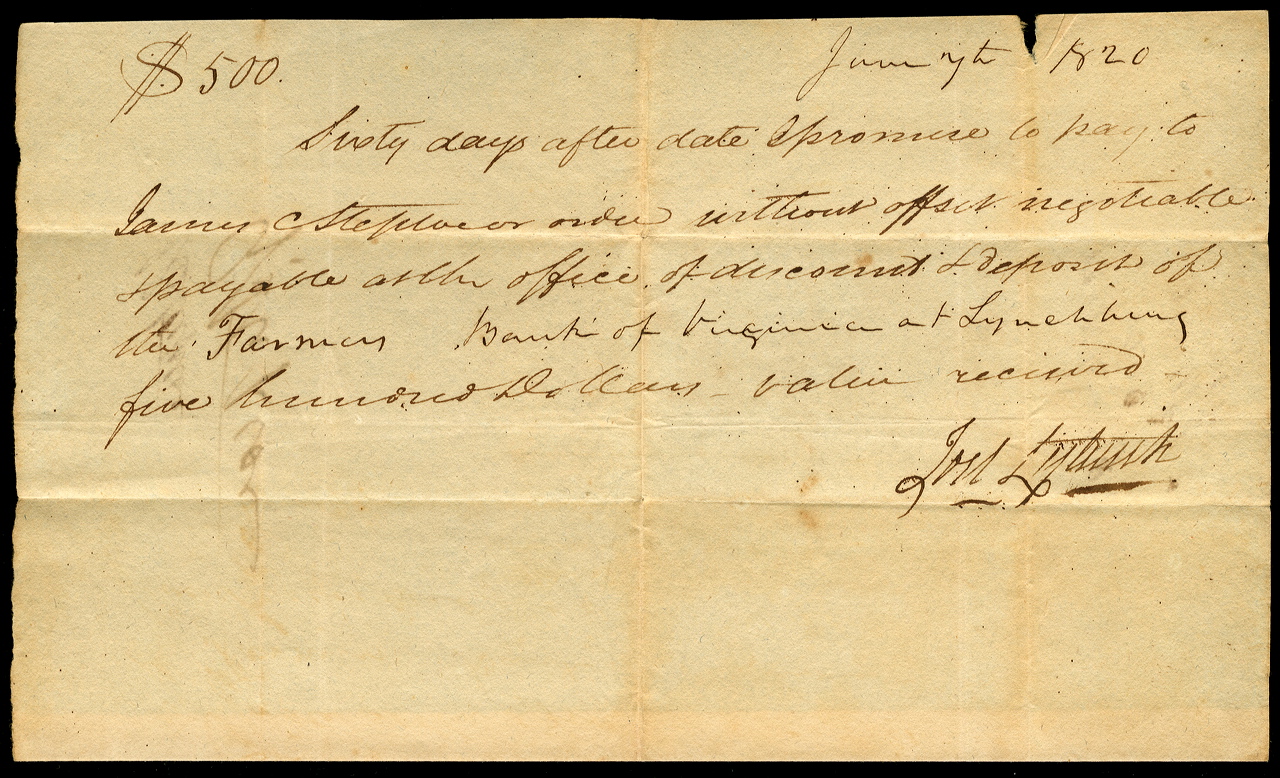 $500. June 7th 1820
Sixty days after date I promise to pay to
James C Steptoe or order without offset negotiable
& payable at the office of discount & Deposit of
the Farmers Bank of Virginia at Lynchburg
five hundred Dollars – value received –